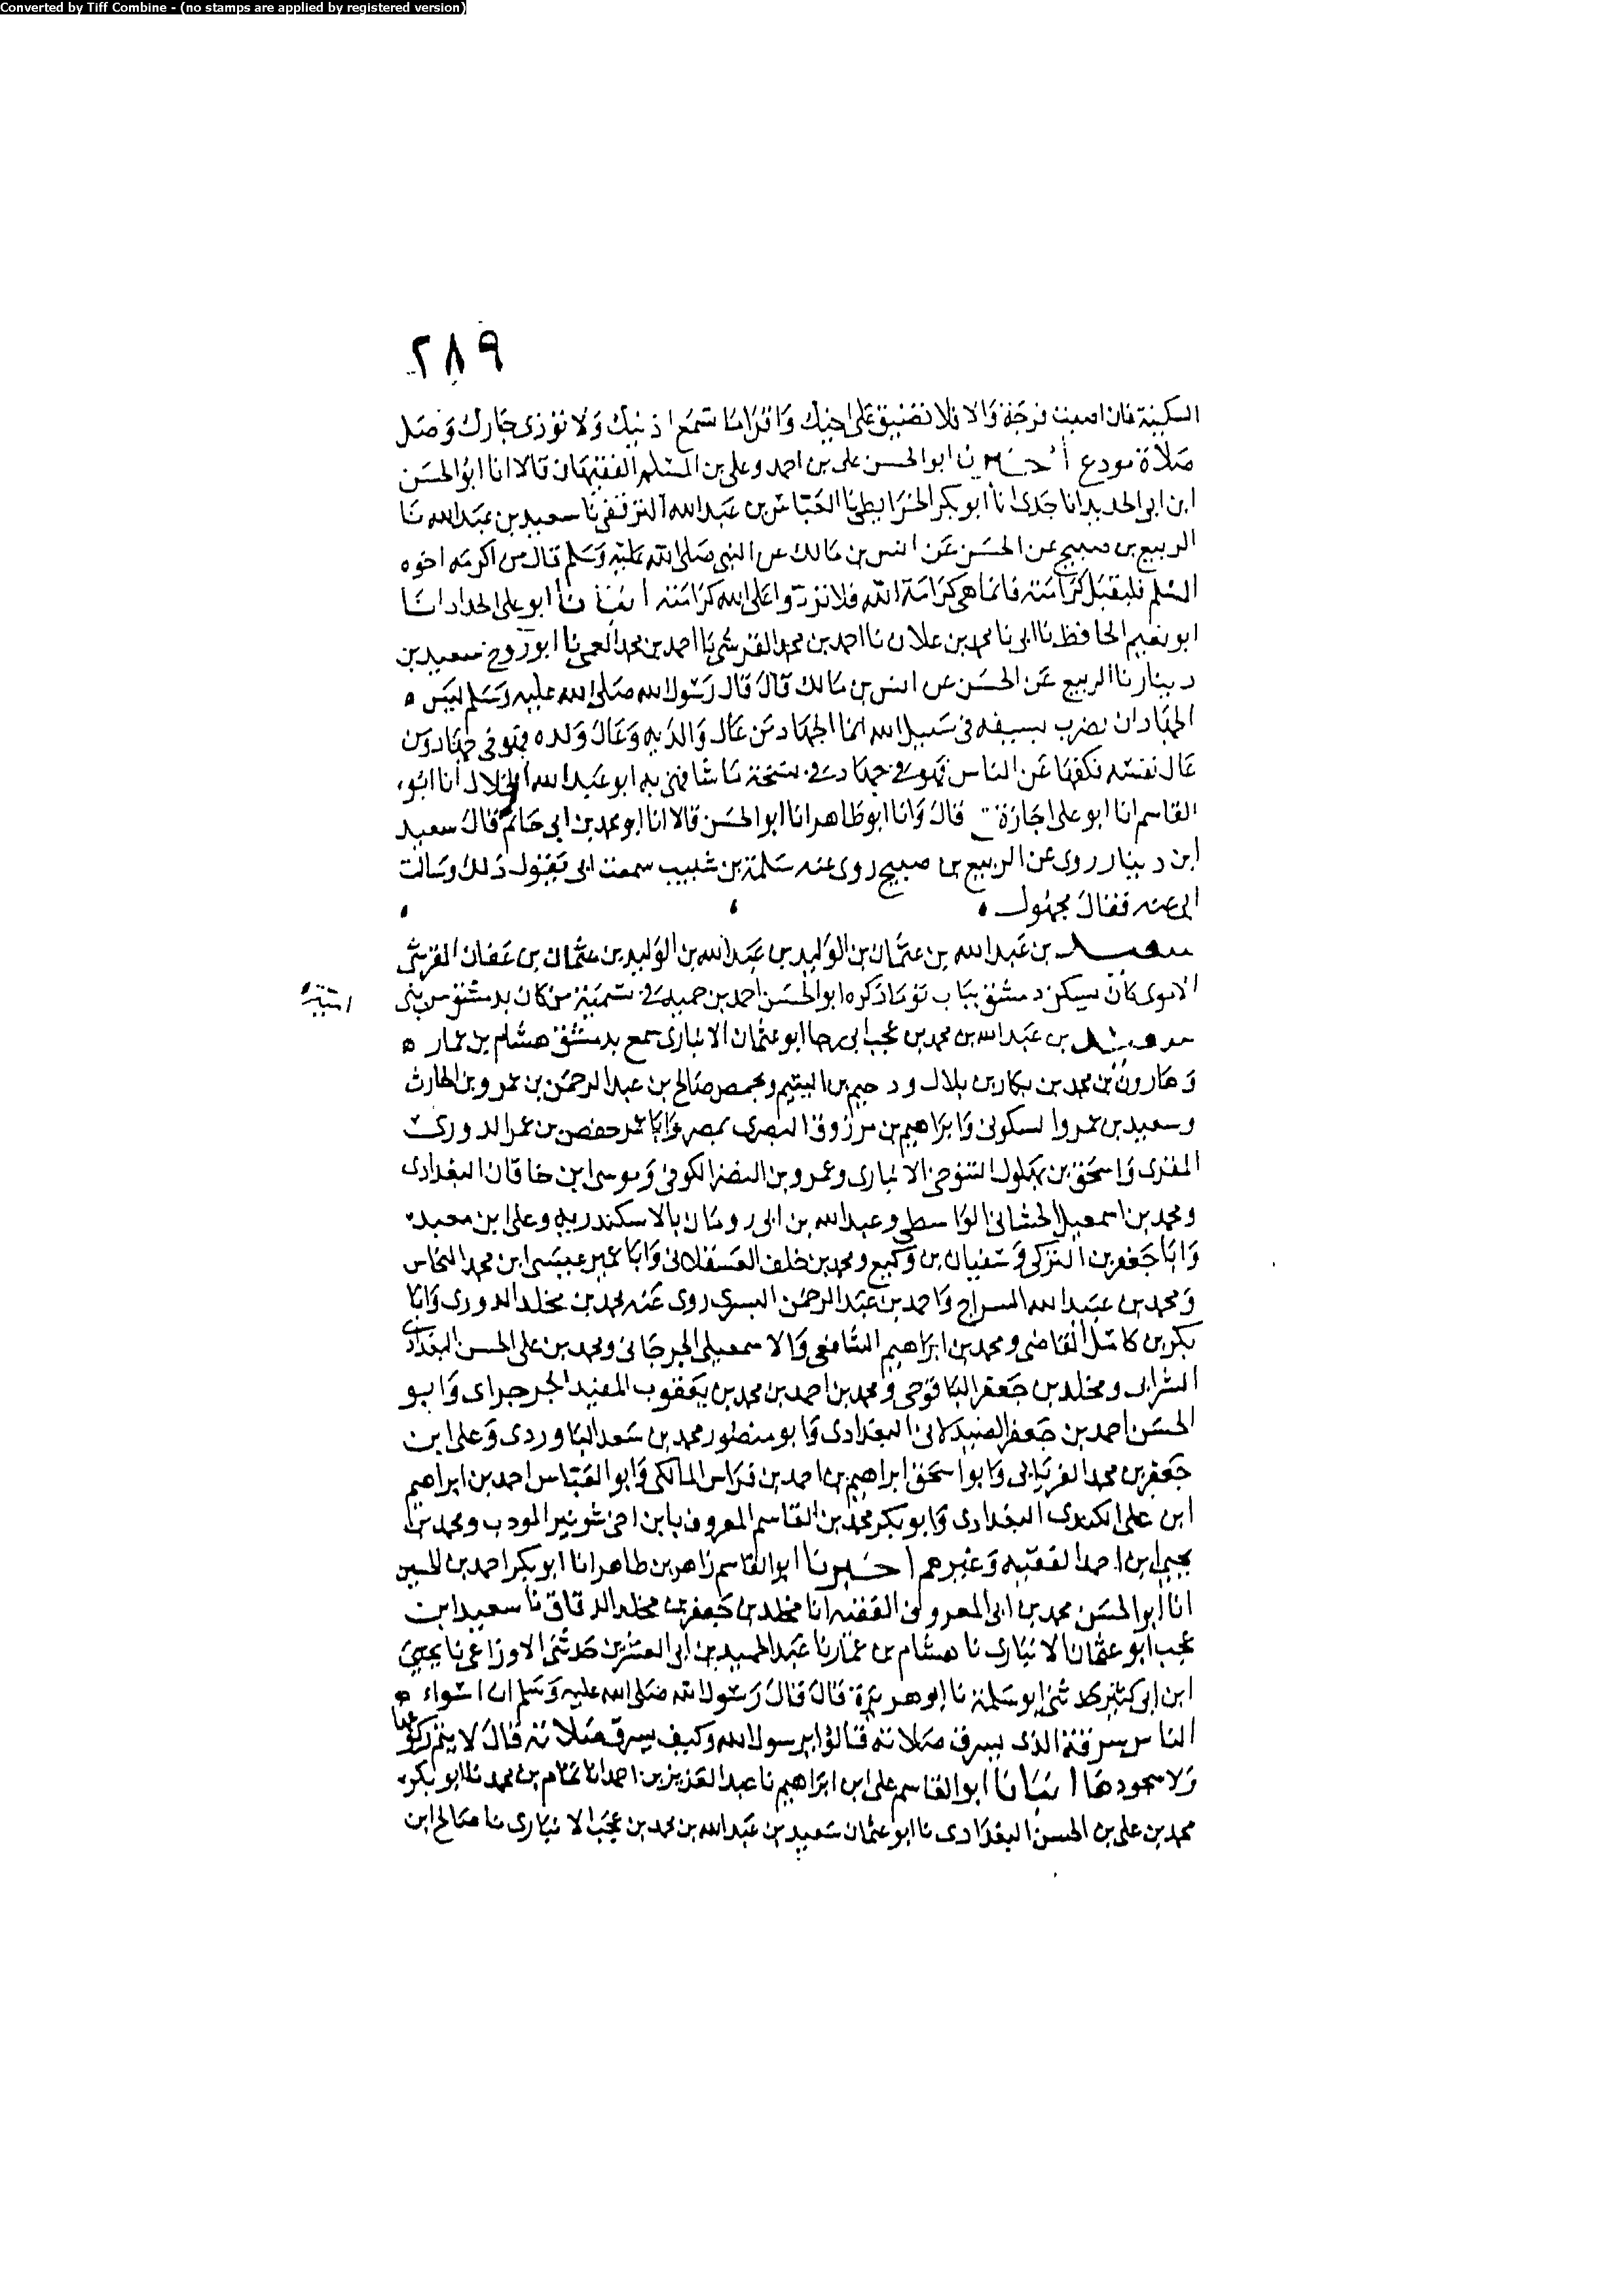 Converted by Tiff Combine - (no stamps are applied by registered version)
٢٨٩
السكينة فان اصبت فرجة والا فلا تضيق على اخيك واقرا ما تسمع اذنيك ولا توذى جارك وصل
صلاة مودع ابو الحسن على بن احمد وعلى بن المسلم الفقيهان قالا انا ابو الحسن
ابن ابى الحديد انا جدى انا ابو بكر الخرايطى نا العباس بن عبد الله الترقفى نا سعيد بن عبد الله نا
الربيع بن صبيح عن الحسن عن انس بن مالك عن النبى صلى الله عليه وسلم قال من اكرمه اخوه
المسلم فليقبل كرامته فانما هى كرامة الله فلا تردوا على الله كرامته انبانا ابو على الحداد انا
ابو نعيم الحافظ نا ابى نا محمد بن علان نا احمد بن محمد القرشى نا احمد بن محمد العمى نا ابو روح سعيد بن
دينار نا الربيع عن الحسن عن انس بن مالك قال قال رسول الله صلى الله عليه وسلم ليس
الجهاد ان يضرب بسيفه فى سبيل الله انما الجهاد من عال والديه وعال ولده فهو فى جهاد ومن
عال نفسه فكفها عن الناس فهو فى جهاد فى نسخة ما شافهنى به ابو عبد الله الخلال انا ابو
القاسم انا ابو على اجازة قال وانا ابو طاهر انا ابو الحسن قالا انا ابو محمد بن ابى حاتم قال سعيد
ابن دينار روى عن الربيع بن صبيح روى عنه سلمة بن شبيب سمعت ابى يقول ذلك وسالت
ابى عنه فقال مجهول
سعيد بن عبد الله بن عثمان بن الوليد بن عبد الله بن الوليد بن عثمان بن عفان القرشى
الاموى كان يسكن دمشق بباب توما ذكره ابو الحسن احمد بن حميد فى تسمية من كان بدمشق من بنى
امية
سعيد بن عبد الله بن محمد بن عجب ابى رجا ابو عثمان الانبارى سمع بدمشق هشام بن عمار
وهارون بن محمد بن بكار بن بلال ودحيم بن اليتيم وبحمص صالح بن عبد الرحمن بن عمرو بن الحارث
وسعيد بن عمرو السكونى وابراهيم بن مرزوق البصرى بمصر وابا عمر حفص بن عمر الدورى
المقرى واسحق بن بهلول التنوخى الانبارى وعمرو بن النضر الكوفى وموسى ابن خاقان البغدادى
ومحمد بن اسمعيل الحسانى الواسطى وعبد الله بن ابى رومان بالاسكندرية وعلى ابن معبد
وابا جعفر بن التركى وسفيان بن وكيع ومحمد بن خلف العسقلانى وابا عمير عيسى ابن محمد النحاس
ومحمد بن عبد الله السراج واحمد بن عبد الرحمن البسرى روى عنه محمد بن مخلد الدورى وابا
بكر بن كامل القاضى ومحمد بن ابراهيم الشافعى والاسمعيلى الجرجانى ومحمد بن على الحسن البغدادى
الشرابى ومخلد بن جعفر الباقرحى ومحمد بن احمد بن محمد بن يعقوب المفيد الجرجراى وابو
الحسن احمد بن جعفر الصيدلانى البغدادى وابو منصور محمد بن سعد الباوردى وعلى ابن
جعفر بن محمد الفريابى وابو اسحق ابراهيم بن احمد بن فراس المالكى وابو العباس احمد بن ابراهيم
ابن على الكندى البغدادى وابو بكر محمد بن القاسم المعروف بابن اخى شونيز المودب ومحمد بن
احمد الفقيه وغيرهم اخبرنا ابو القاسم زاهر بن طاهر انا ابو بكر احمد بن الحسين
انا ابو الحسن محمد بن ابى المعروف الفقيه انا مخلد بن جعفر بن مخلد الدقاق نا سعيد ابن
عجب ابو عثمان الانبارى نا هشام بن عمار نا عبد الحميد بن ابى العشرين حدثنى الاوزاعى نا يحيى
ابن ابى كثير حدثنى ابو سلمة نا ابو هريرة قال قال رسول الله صلى الله عليه وسلم ان اسواء
الناس سرقة الذى يسرق صلاته قالوا يرسول الله وكيف يسرق صلاته قال لا يتم ركوعها
ولا سجودها انبانا ابو القاسم على ابن ابراهيم نا عبد العزيز بن احمد انا تمام بن محمد نا ابو بكر
محمد بن على بن الحسن البغدادى نا ابو عثمان سعيد بن عبد الله بن محمد بن عجب الانبارى نا صالح ابن